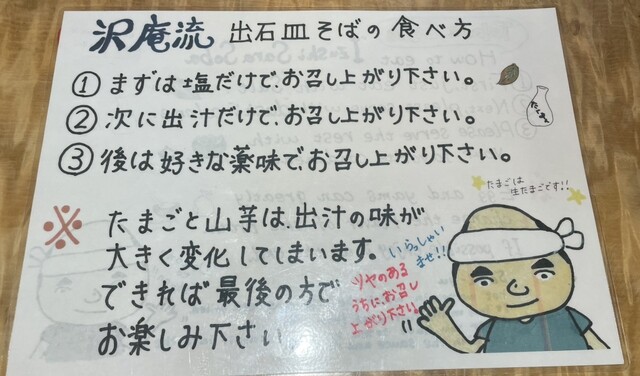 沢庵流 出石皿そばの食べ方
① まずは塩だけで、お召し上がり下さい。
② 次に出汁だけで、お召し上がり下さい。
③ 後は好きな薬味で、お召し上がり下さい。
たまごは
生たまごです!!
※ たまごと山芋は、出汁の味が
大きく変化してしまいます。
できれば最後の方で
お楽しみ下さい
いらっしゃい
ませ!!
ツヤのある
うちに、お召し
上がり下さい。